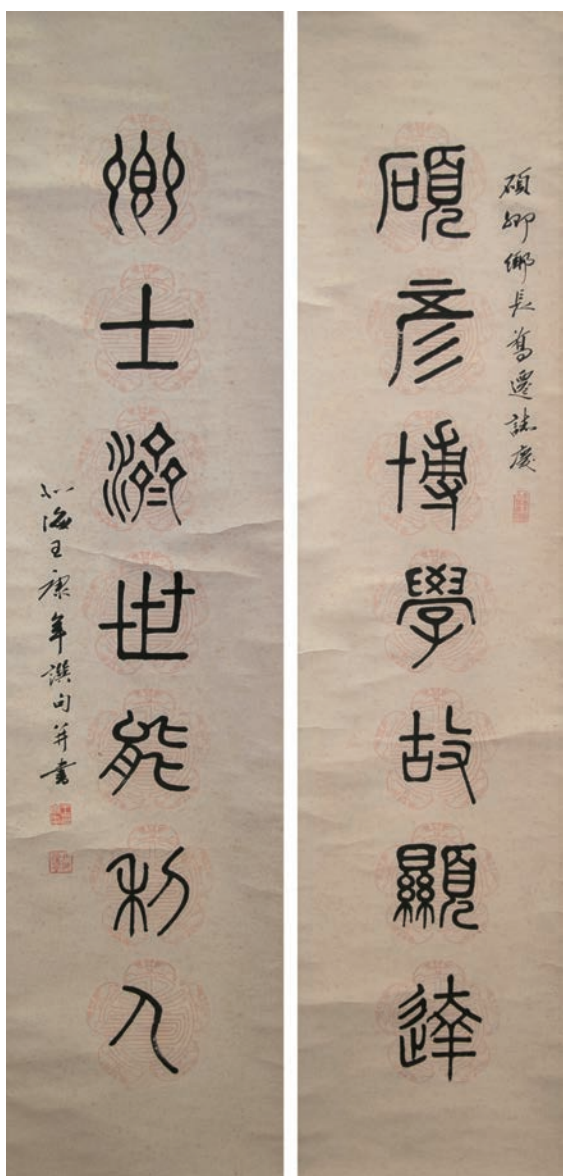 碩卿鄉長喬遷誌慶
碩彥博學故顯達
卿士濟世能利人
北海王康年譔句并書